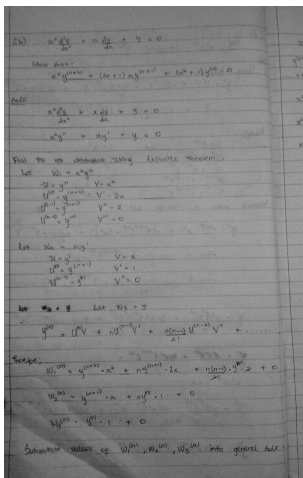 x² d²y/dx² + x dy/dx + y = 0
Show that:
x² y⁽ⁿ⁺²⁾ + (2n + 1) x y⁽ⁿ⁺¹⁾ + (n² + 1) y⁽ⁿ⁾ = 0
x² d²y/dx² + x dy/dx + y = 0
x² y'' + xy' + y = 0
Find nth derivative using Leibnitz theorem.
Let W₁ = x² y''
U = y'' V = x²
U⁽ⁿ⁾ = y⁽ⁿ⁺²⁾ V' = 2x
U⁽ⁿ⁻¹⁾ = y⁽ⁿ⁺¹⁾ V'' = 2
U⁽ⁿ⁻²⁾ = y⁽ⁿ⁾ V''' = 0
Let W₂ = xy'
U = y' V = x
U⁽ⁿ⁾ = y⁽ⁿ⁺¹⁾ V' = 1
U⁽ⁿ⁻¹⁾ = y⁽ⁿ⁾ V'' = 0
Let W₃ = y
y⁽ⁿ⁾ = U⁽ⁿ⁾V + nU⁽ⁿ⁻¹⁾V' + n(n-1)/2! U⁽ⁿ⁻²⁾ V'' + ......
Therefore;
W₁⁽ⁿ⁾ = y⁽ⁿ⁺²⁾ · x² + ny⁽ⁿ⁺¹⁾ · 2x + n(n-1)/2! · y⁽ⁿ⁾ · 2 + 0
W₂⁽ⁿ⁾ = y⁽ⁿ⁺¹⁾ · x + ny⁽ⁿ⁾ · 1 + 0
W₃⁽ⁿ⁾ = y⁽ⁿ⁾ · 1 + 0
Substitute values of W₁⁽ⁿ⁾, W₂⁽ⁿ⁾, W₃⁽ⁿ⁾ into general